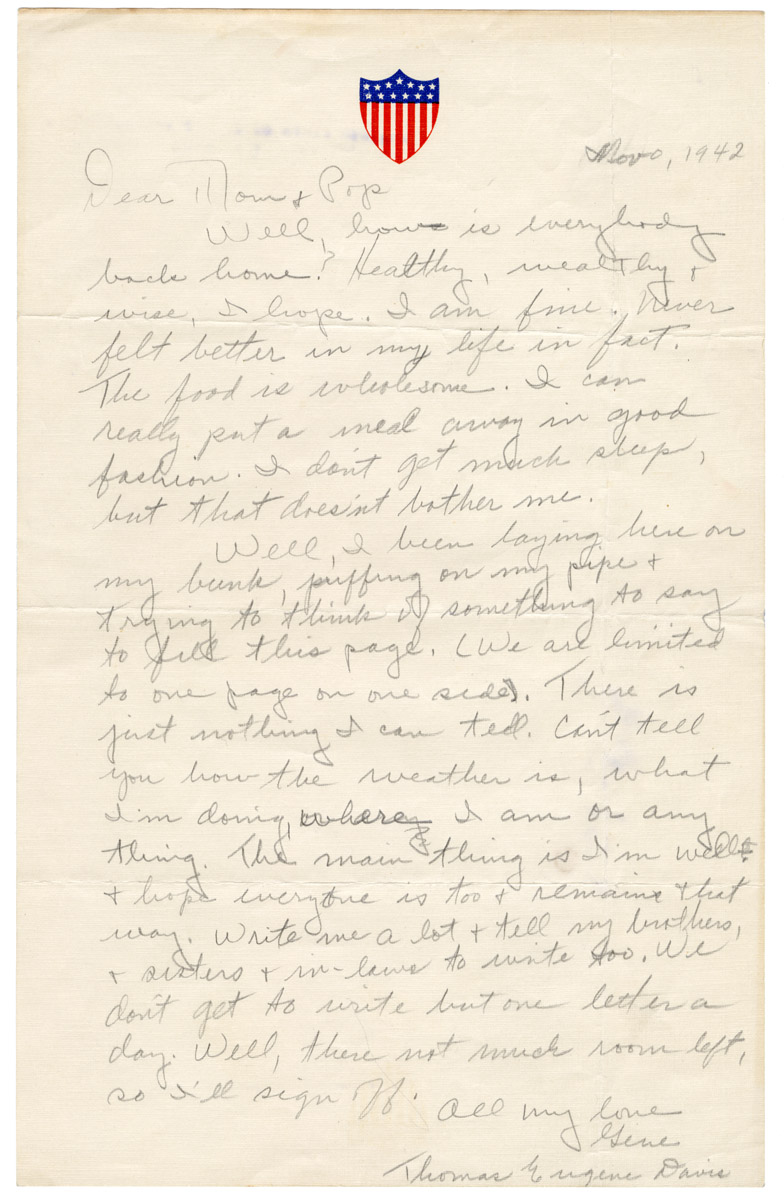 Nov 0, 1942
Dear Mom & Pop
Well, how is everybody
back home? Healthy, wealthy &
wise, I hope. I am fine. Never
felt better in my life in fact.
The food is wholesome. I can
really put a meal away in good
fashion. I don't get much sleep,
but that does'nt bother me.
Well, I been laying here on
my bunk, puffing on my pipe &
trying to think of something to say
to fill this page. (We are limited
to one page on one side). There is
just nothing I can tell. Can't tell
you how the weather is, what
I'm doing, where I am or any
thing. The main thing is I'm well
& hope everyone is too & remains that
way. Write me a lot & tell my brothers,
& sisters & in-laws to write too. We
don't get to write but one letter a
day. Well, there not much room left,
so I'll sign off. All my love
Gene
Thomas Eugene Davis